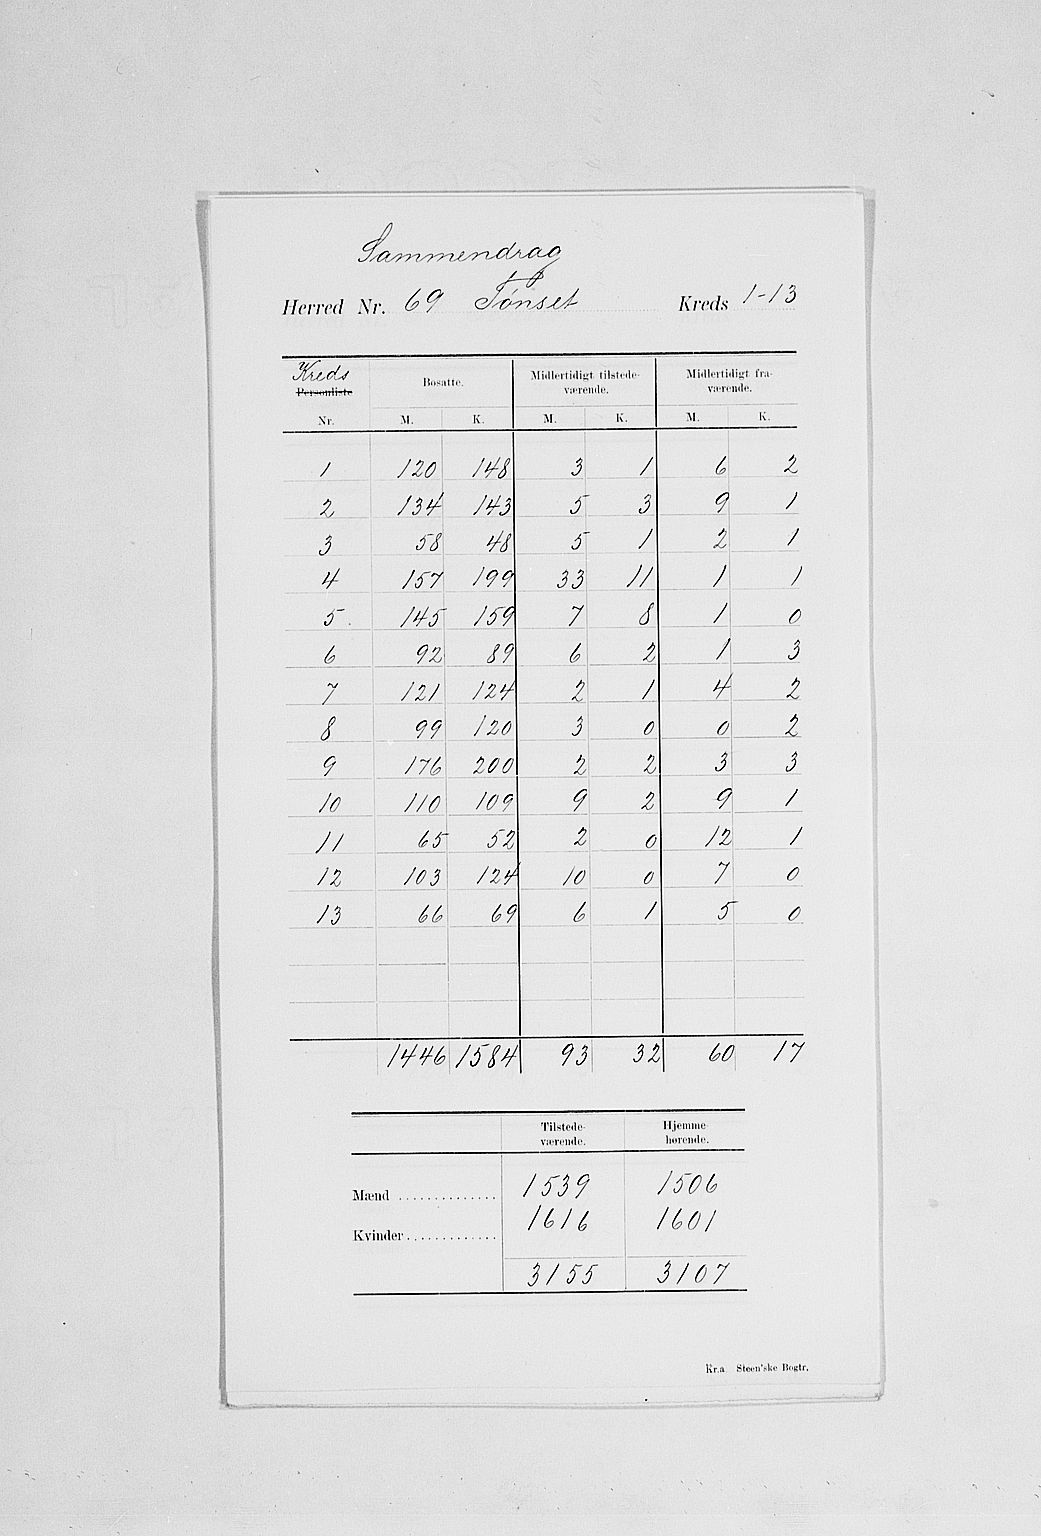 Sammendrag
Herred Nr. 69 Tønset Kreds 1-13
Kreds
Personliste Bosatte. Midlertidigt tilstede- Midlertidigt fra-
værende. værende.
Nr. M. K. M. K. M. K.
1 120 148 3 1 6 2
2 134 143 5 3 9 1
3 58 48 5 1 2 1
4 157 199 33 11 1 1
5. 145 159 7 8 1 0
6 92 89 6 2 1 3
7 121 124 2 1 4 2
8 99 120 3 0 0 2
9 176 200 2 2 3 3
10 110 109 9 2 9 1
11 65 52 2 0 12 1
12 103 124 10 0 7 0
13 66 69 6 1 5 0
1446 1584 93 32 60 17
Tilstede- Hjemme-
værende. hørende.
Mænd .............. 1539 1506
Kvinder............. 1616 1601
3155 3107
Kr.a Steen'ske Bogtr.